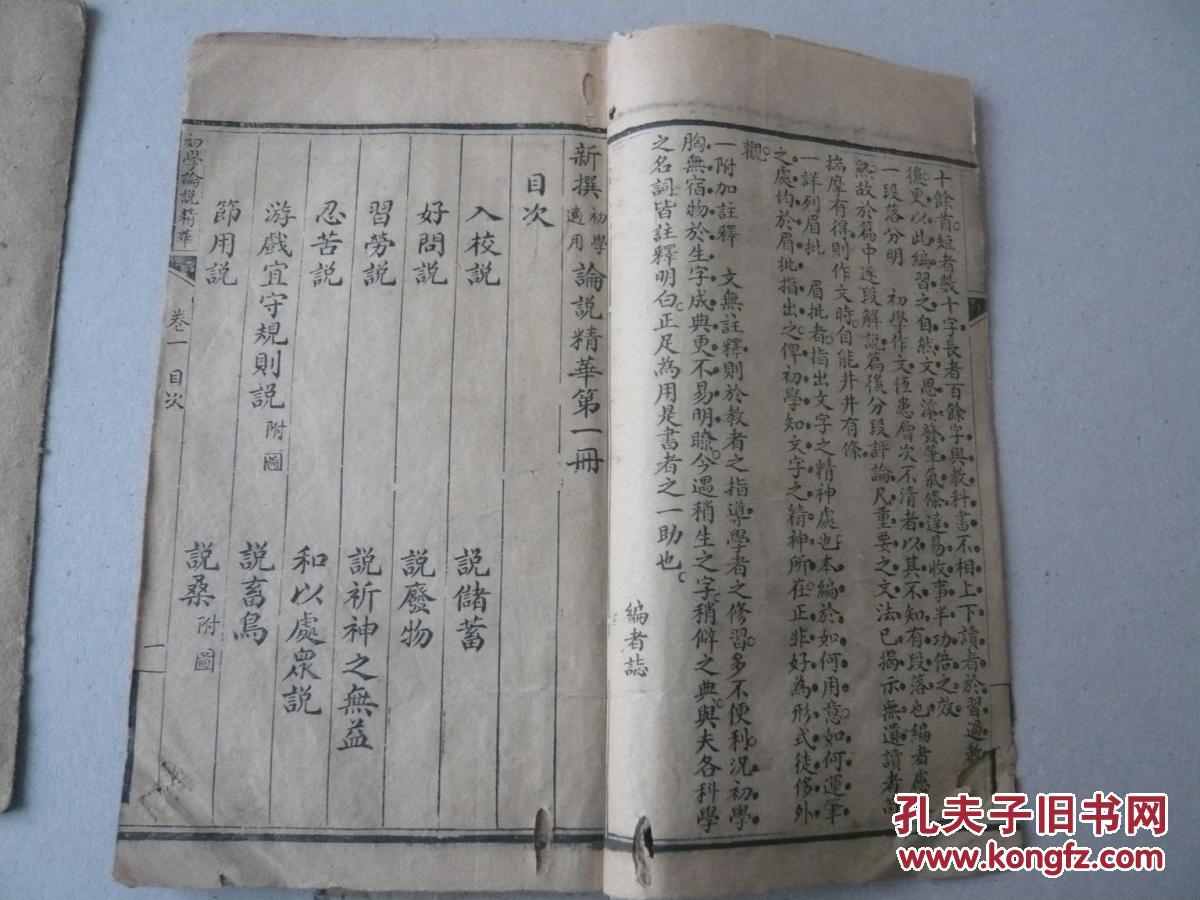 十餘首短者數十字長者百餘字與教科書不相上下讀者於習過教
後更以此編習之自然文思濬發筆氣條達易收事半功倍之效
一段落分明　初學作文恆患層次不清者以其不知有段落也編者慮
故於篇中逐段解說篇後分段評論凡重要之文法已揭示無遺讀者
揣摩有得則作文時自能井井有條
一詳列眉批　眉批者指出文字之精神處也本編於如何用意如何運筆
之處均於眉批指出之俾初學知文字之精神所在正非好為形式徒侈外
觀
一附加註釋　文無註釋則於教者之指導學者之修習多不便利況初學
胸無宿物於生字成典更不易明瞭今遇稍生之字稍僻之典與夫各科學
之名詞皆註釋明白正足為用是書者之一助也
編者誌
新撰初學適用論說精華第一冊
目次
入校說　說儲蓄
好問說　說廢物
習勞說　說祈神之無益
忍苦說　和以處眾說
游戲宜守規則說附圖　說畜鳥
節用說　說桑附圖
初學論說精華　卷一　目次　一
孔夫子旧书网
www.kongfz.com